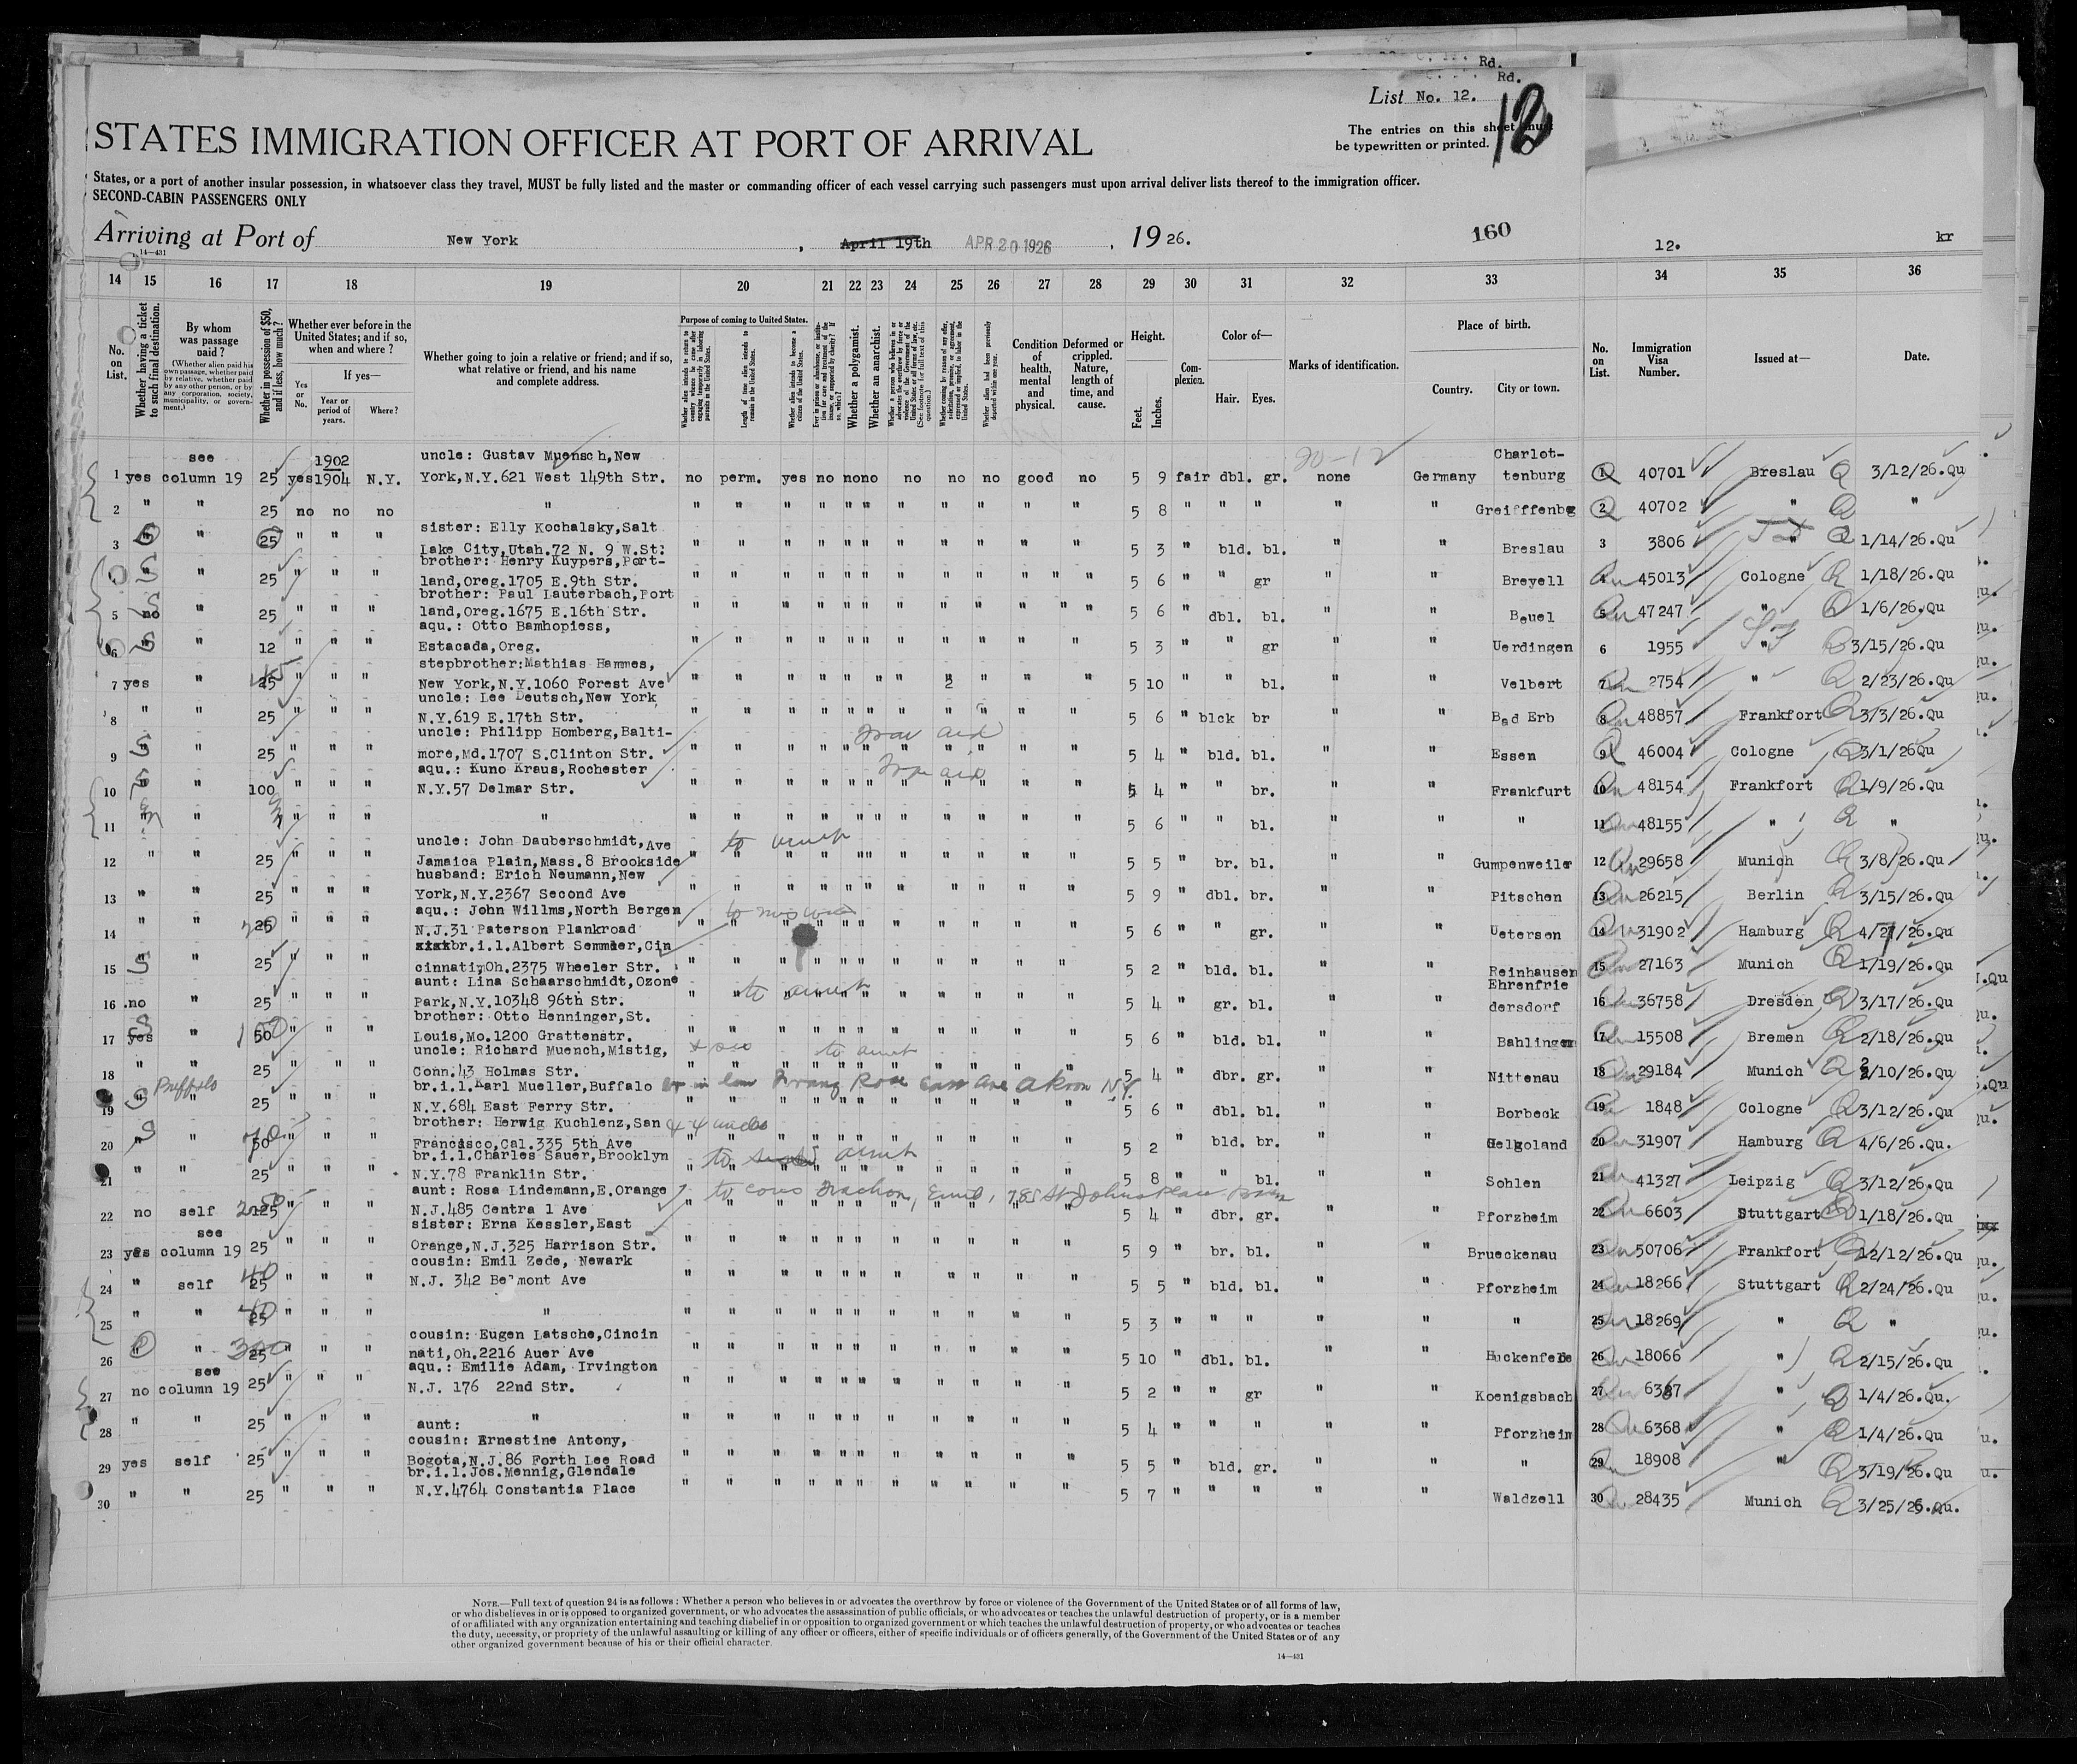 Rd.
Rd.
List No. 12.
12
The entries on this sheet must
be typewritten or printed.
STATES IMMIGRATION OFFICER AT PORT OF ARRIVAL
States, or a port of another insular possession, in whatsoever class they travel, MUST be fully listed and the master or commanding officer of each vessel carrying such passengers must upon arrival deliver lists thereof to the immigration officer.
SECOND-CABIN PASSENGERS ONLY
Arriving at Port of New York, April 19th APR 20 1926, 1926.
160
12.
kr
14—431
14 15 16 17 18 19 20 21 22 23 24 25 26 27 28 29 30 31 32 33 34 35 36
No. on List.
Whether having a ticket to such final destination.
By whom was passage paid?
(Whether alien paid his own passage, whether paid by relative, whether paid by any other person, or by any corporation, society, municipality, or government.)
Whether in possession of $50, and if less, how much?
Whether ever before in the United States; and if so, when and where?
If yes—
Yes or No.
Year or period of years.
Where?
Whether going to join a relative or friend; and if so, what relative or friend, and his name and complete address.
Purpose of coming to United States.
Whether a polygamist.
Whether an anarchist.
Condition of health, mental and physical.
Deformed or crippled. Nature, length of time, and cause.
Height.
Feet.
Inches.
Complexion.
Color of—
Hair.
Eyes.
Marks of identification.
Place of birth.
Country.
City or town.
No. on List.
Immigration Visa Number.
Issued at—
Date.
see 1902 uncle: Gustav Muensch,New 20-12 Charlot-
1 yes column 19 25 yes 1904 N.Y. York,N.Y.621 West 149th Str. no perm. yes no no no no no no good no 5 9 fair dbl. gr. none Germany tenburg 1 40701 Breslau 3/12/26.Qu
2 " " 25 no no no " " " " " " " " " " " " 5 8 " " " " " Greifffenbg 2 40702 " "
sister: Elly Kochalsky,Salt
3 " " 25 " " " Lake City,Utah.72 N. 9 W.St: 5 3 " bld. bl. " " Breslau 3 3806 " 1/14/26.Qu
brother: Henry Kuypers,Port-
" " 25 " " " land,Oreg.1705 E.9th Str. 5 6 " " gr " " Breyell 4 45013 Cologne 1/18/26.Qu
brother: Paul Lauterbach,Port
5 no " 25 " " " land,Oreg.1675 E.16th Str. 5 6 " dbl. bl. " " Beuel 5 47247 " 1/6/26.Qu
aqu.: Otto Bamhopiess,
6 " " 12 " " " Estacada,Oreg. 5 3 " " gr " " Uerdingen 6 1955 " 3/15/26.Qu
stepbrother:Mathias Hammes,
7 yes " 25 " " " New York,N.Y.1060 Forest Ave 2 5 10 " " bl. " " Velbert 7 2754 " 2/23/26.Qu
uncle: Lee Deutsch,New York
8 " " 25 " " " N.Y.619 E.17th Str. 5 6 " blck br " " Bad Erb 8 48857 Frankfort 3/3/26.Qu
uncle: Philipp Homberg,Balti-
9 " " 25 " " " more,Md.1707 S.Clinton Str. 5 4 " bld. bl. " " Essen 9 46004 Cologne 3/1/26Qu
aqu.: Kuno Kraus,Rochester
10 " " 100 " " " N.Y.57 Delmar Str. 5 4 " " br. " " Frankfurt 10 48154 Frankfort 1/9/26.Qu
11 " " " " " " 5 6 " " bl. " " " 11 48155 " "
uncle: John Dauberschmidt,Ave to aunt
12 " " 25 " " " Jamaica Plain,Mass.8 Brookside 5 5 " br. bl. " " Gumpenweiler 12 29658 Munich 3/8/26.Qu
husband: Erich Neumann,New
13 " " 25 " " " York,N.Y.2367 Second Ave 5 9 " dbl. br. " " Pitschen 13 26215 Berlin 3/15/26.Qu
aqu.: John Willms,North Bergen
14 " " 25 " " " N.J.31 Paterson Plankroad 5 6 " " gr. " " Uetersen 14 31902 Hamburg 4/7/26.Qu
br.i.l.Albert Semmler,Cin
15 " " 25 " " " cinnati,Oh.2375 Wheeler Str. 5 2 " bld. bl. " " Reinhausen 15 27163 Munich 1/19/26.Qu
aunt: Lina Schaarschmidt,Ozone to aunt Ehrenfrie
16 no " 25 " " " Park,N.Y.10348 96th Str. 5 4 " gr. bl. " " dersdorf 16 36758 Dresden 3/17/26.Qu
brother: Otto Henninger,St.
17 yes " 50 100 " " " Louis,Mo.1200 Grattenstr. 5 6 " bld. bl. " " Bahlingen 17 15508 Bremen 2/18/26.Qu
uncle: Richard Muench,Mistig, to aunt
18 " " 25 " " " Conn.43 Holmas Str. 5 4 " dbr. gr. " " Nittenau 18 29184 Munich 2/10/26.Qu
Buffalo br.i.l.Karl Mueller,Buffalo Akron N.Y.
19 " " 25 " " " N.Y.684 East Ferry Str. 5 6 " dbl. bl. " " Borbeck 19 1848 Cologne 3/12/26.Qu
brother: Herwig Kuchlenz,San
20 " " 50 " " " Francisco,Cal.335 5th Ave 5 2 " bld. br. " " Helgoland 20 31907 Hamburg 4/6/26.Qu.
br.i.l.Charles Sauer,Brooklyn to aunt
21 " " 25 " " " N.Y.78 Franklin Str. 5 8 " " bl. " " Sohlen 21 41327 Leipzig 3/12/26.Qu
aunt: Rosa Lindemann,E.Orange to cous 785 St Johns Place
22 no self " " " N.J.485 Centra l Ave 5 4 " dbr. gr. " " Pforzheim 22 6603 Stuttgart 1/18/26.Qu
see sister: Erna Kessler,East
23 yes column 19 25 " " " Orange,N.J.325 Harrison Str. 5 9 " br. bl. " " Brueckenau 23 50706 Frankfort 12/12/26.Qu
cousin: Emil Zede, Newark
24 " self 25 40 " " " N.J. 342 Belmont Ave 5 5 " bld. bl. " " Pforzheim 24 18266 Stuttgart 2/24/26.Qu
25 " " 25 40 " " " " 5 3 " " " " " " 25 18269 " "
cousin: Eugen Latsche,Cincin
26 " " 25 300 " " " nati,Oh.2216 Auer Ave 5 10 " dbl. bl. " " Huckenfelde 26 18066 " 2/15/26.Qu
see aqu.: Emilie Adam, Irvington
27 no column 19 25 " " " N.J. 176 22nd Str. 5 2 " " gr " " Koenigsbach 27 6367 " 1/4/26.Qu.
28 " " 25 " " " aunt: " 5 4 " " " " " Pforzheim 28 6368 " 1/4/26.Qu
cousin: Ernestine Antony,
29 yes self 25 " " " Bogota,N.J.86 Forth Lee Road 5 5 " bld. gr. " " " 29 18908 " 3/19/26.Qu
br.i.l.Jos.Mennig,Glendale
30 " " 25 " " " N.Y.4764 Constantia Place 5 7 " " " " " Waldzell 30 28435 Munich 3/25/26.Qu.
NOTE.—Full text of question 24 is as follows: Whether a person who believes in or advocates the overthrow by force or violence of the Government of the United States or of all forms of law,
or who disbelieves in or is opposed to organized government, or who advocates the assassination of public officials, or who advocates or teaches the unlawful destruction of property, or is a member
of or affiliated with any organization entertaining and teaching disbelief in or opposition to organized government or which teaches the unlawful destruction of property, or who advocates or teaches
the duty, necessity, or propriety of the unlawful assaulting or killing of any officer or officers, either of specific individuals or of officers generally, of the Government of the United States or of any
other organized government because of his or their official character.
14—431